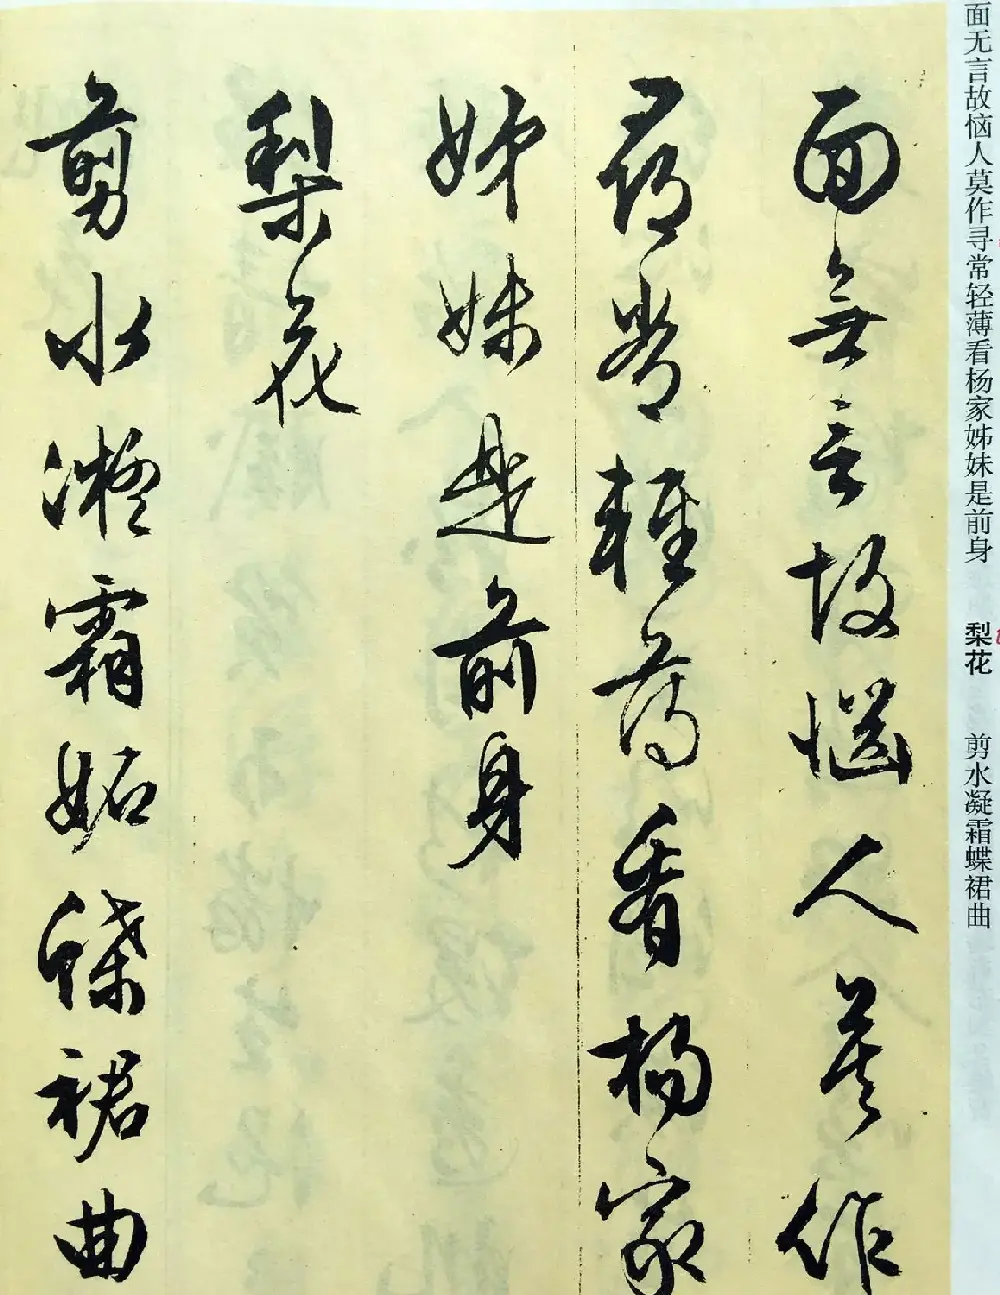 面无言故恼人莫作寻常轻薄看杨家姊妹是前身 梨花 剪水凝霜蝶裙曲
面無言故惱人莫作
尋常輕薄看楊家
姊妹是前身
梨花
剪水凝霜妬蝶裙曲